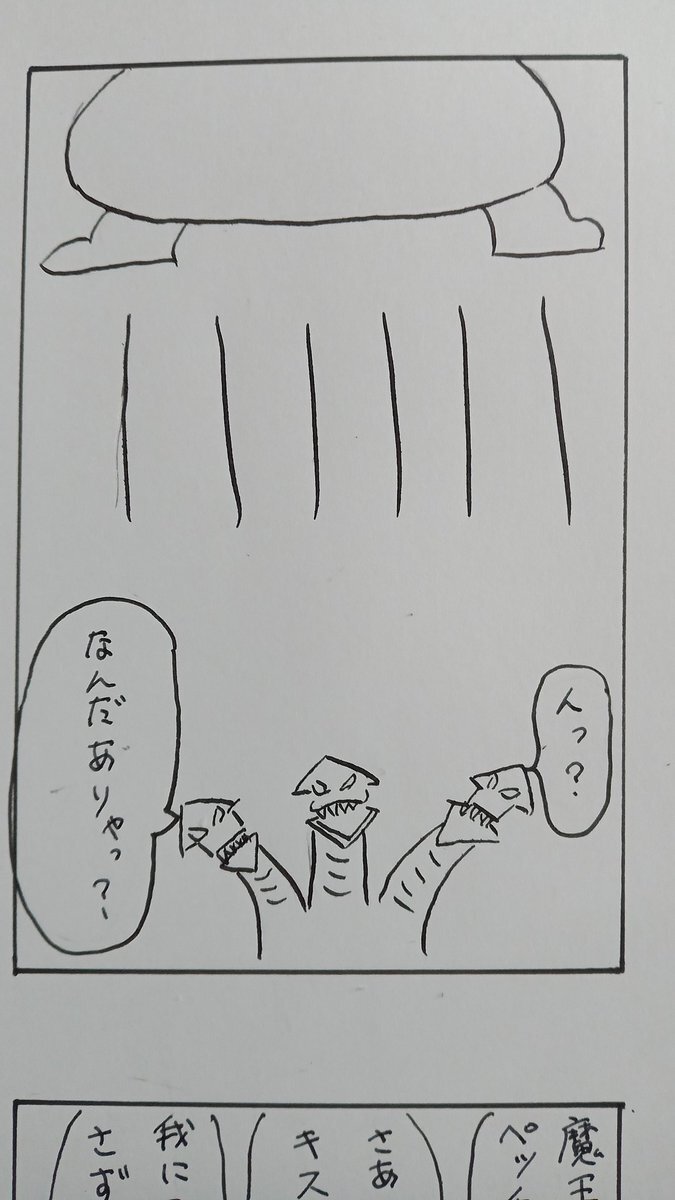 んっ?
なんだありゃっ?
魔王
ペッ
さあ
キス
我に
さず